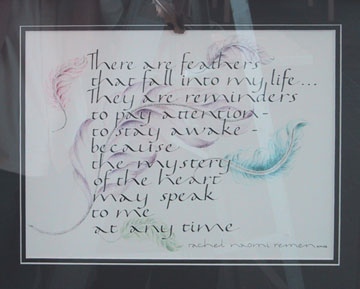 There are feathers
that fall into my life...
They are reminders
to pay attention -
to stay awake -
because
the mystery
of the heart
may speak
to me
at any time
rachel naomi remen